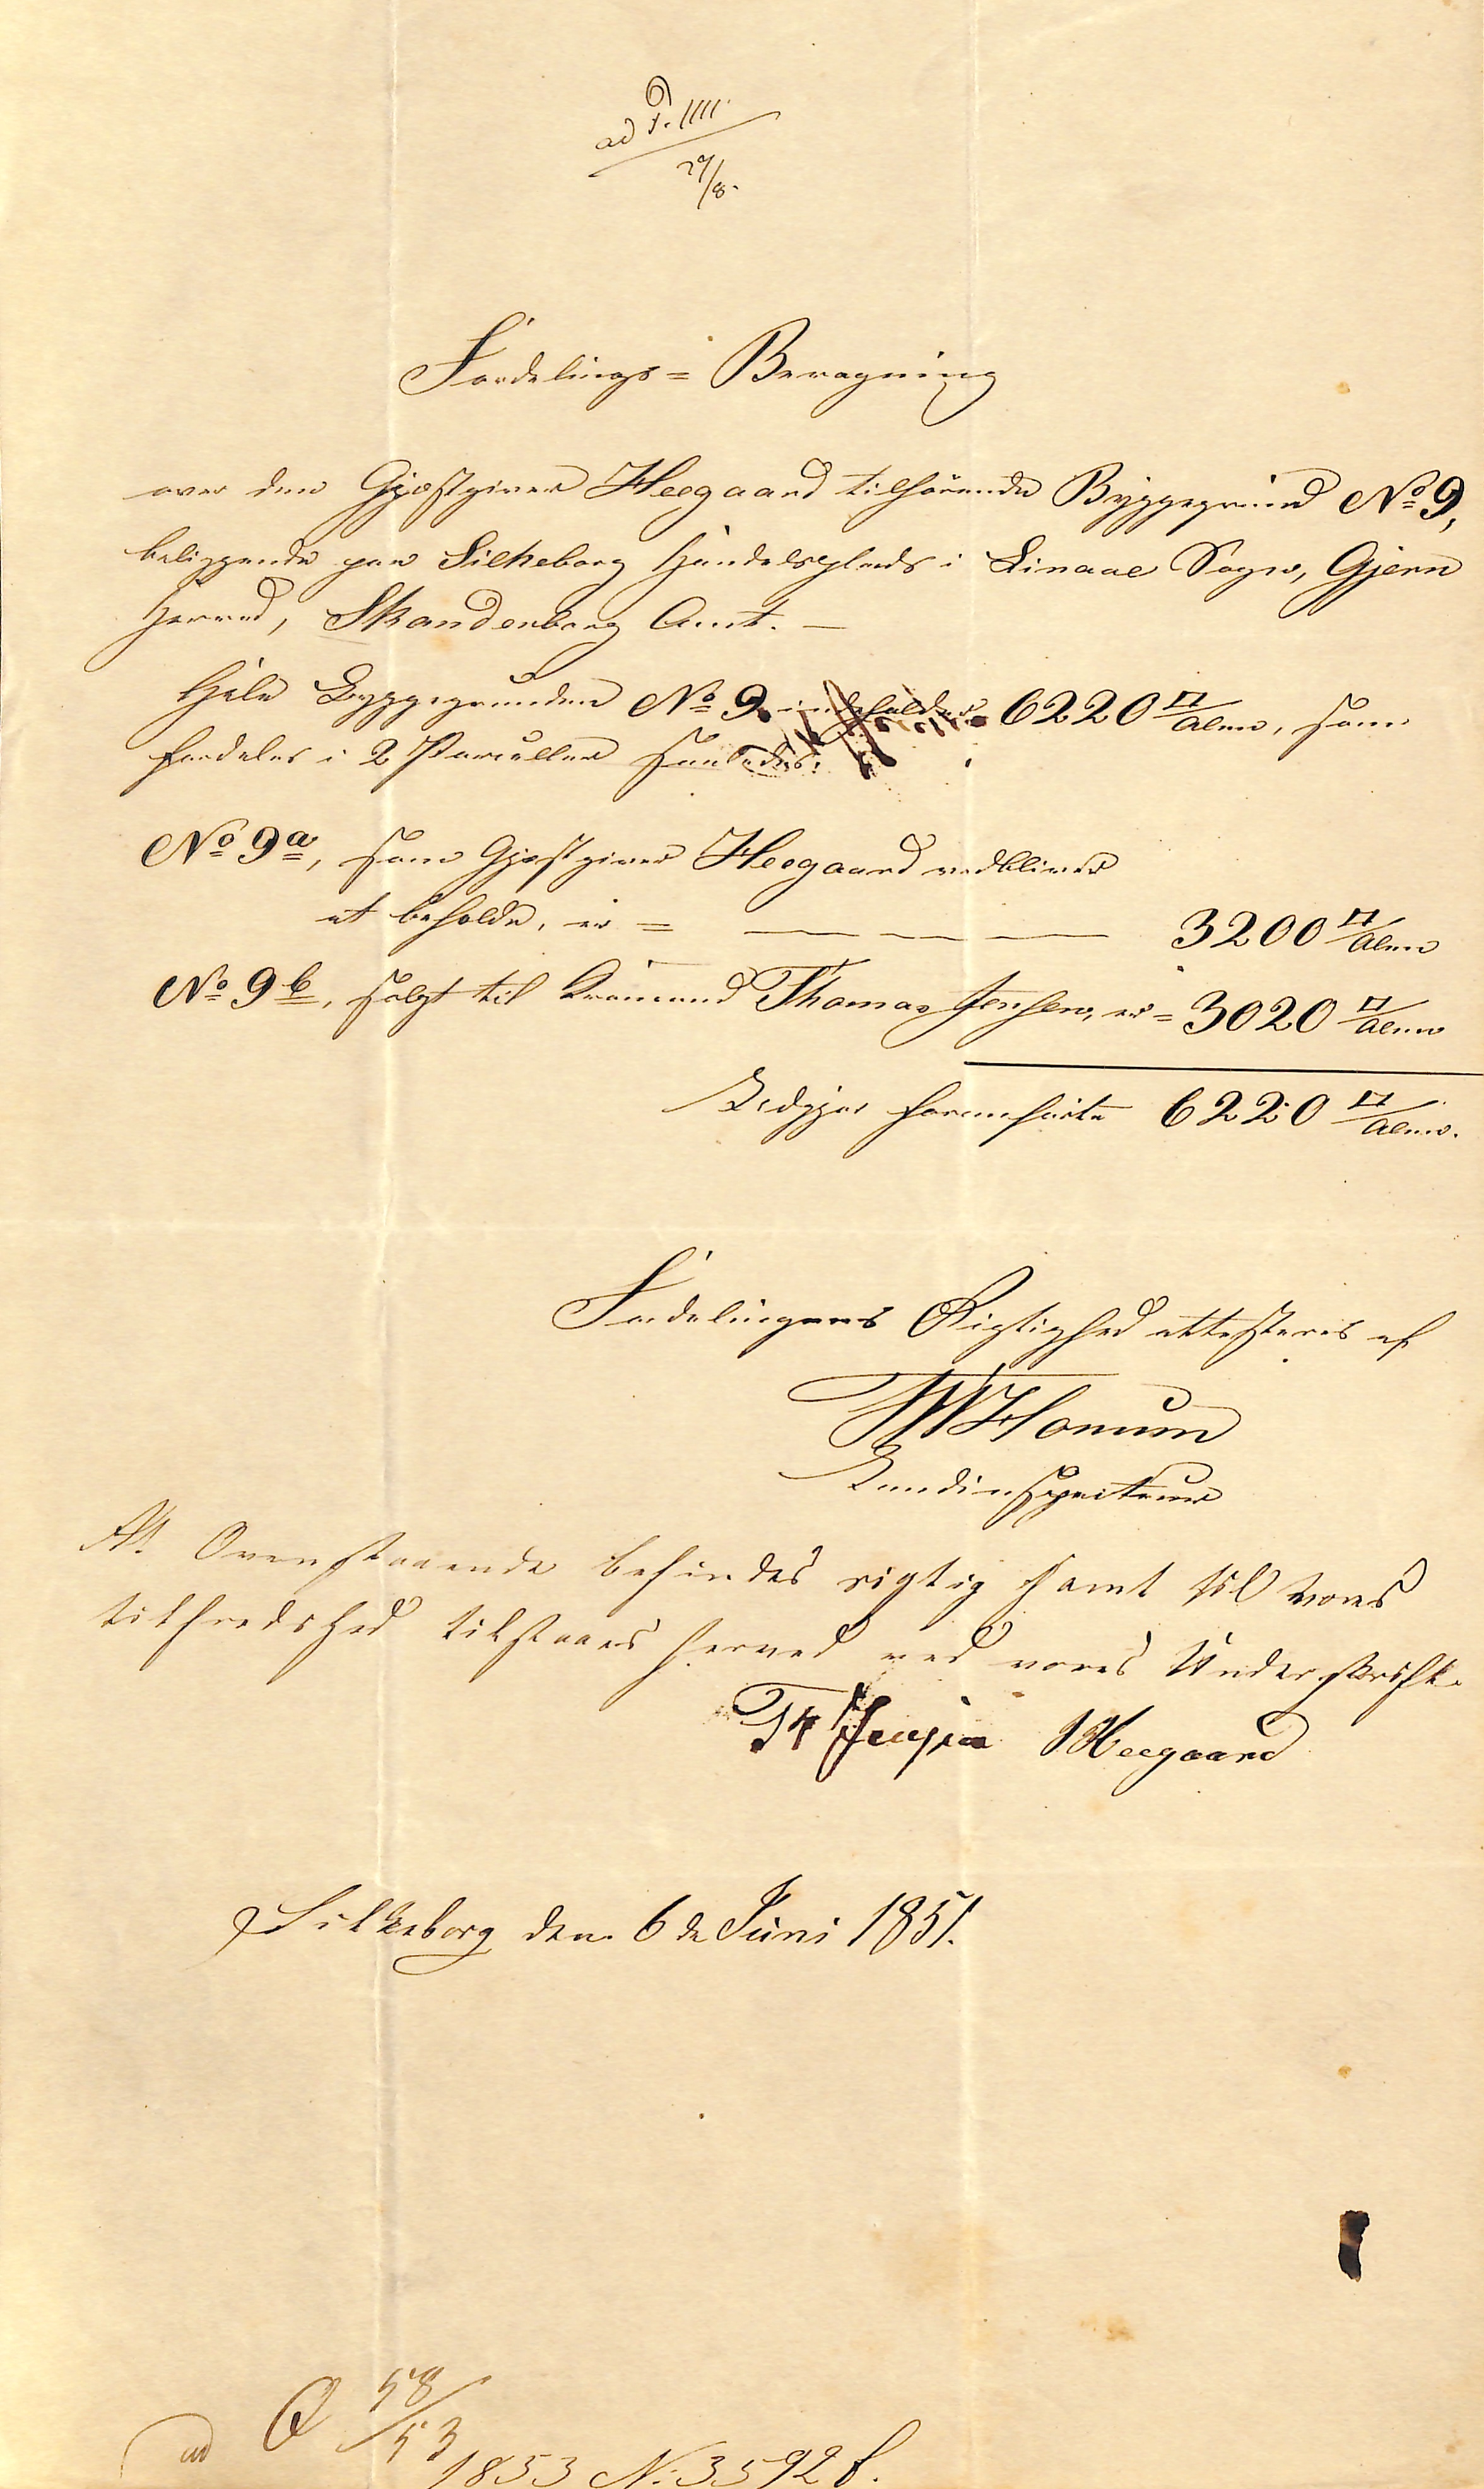 ad P. 1111
27/8.
Fordelings= Beregning
over den Gjæstgiver Heegaard tilhørende Byggegrund No 9,
beliggende paa Silkeborg Handelsplads i Linaae Sogn, Gjern
Herred, Skanderborg Amt. —
Hele Byggegrunden No 9 indeholder 6220 □ Alen, som
fordeles i 2 Parceller saaledes:
No 9a, som Gjæstgiver Heegaard vedbliver
at beholde, er = — — — 3200 □ Alen
No 9b, solgt til Krømand Thomas Jensen, er = 3020 □ Alen
Udgjør forannførte 6220 □ Alen.
Fordelingens Rigtighed attesteres af
Hornum
Landinspecteur
At Ovenstaaende befindes rigtig samt til vores
tilfredshed tilstaaes herved ved vores Underskrift.
Th Jensen Heegaard
Silkeborg den 6de Juni 1851.
ad Q 58/53
1853 N: 3592 f.